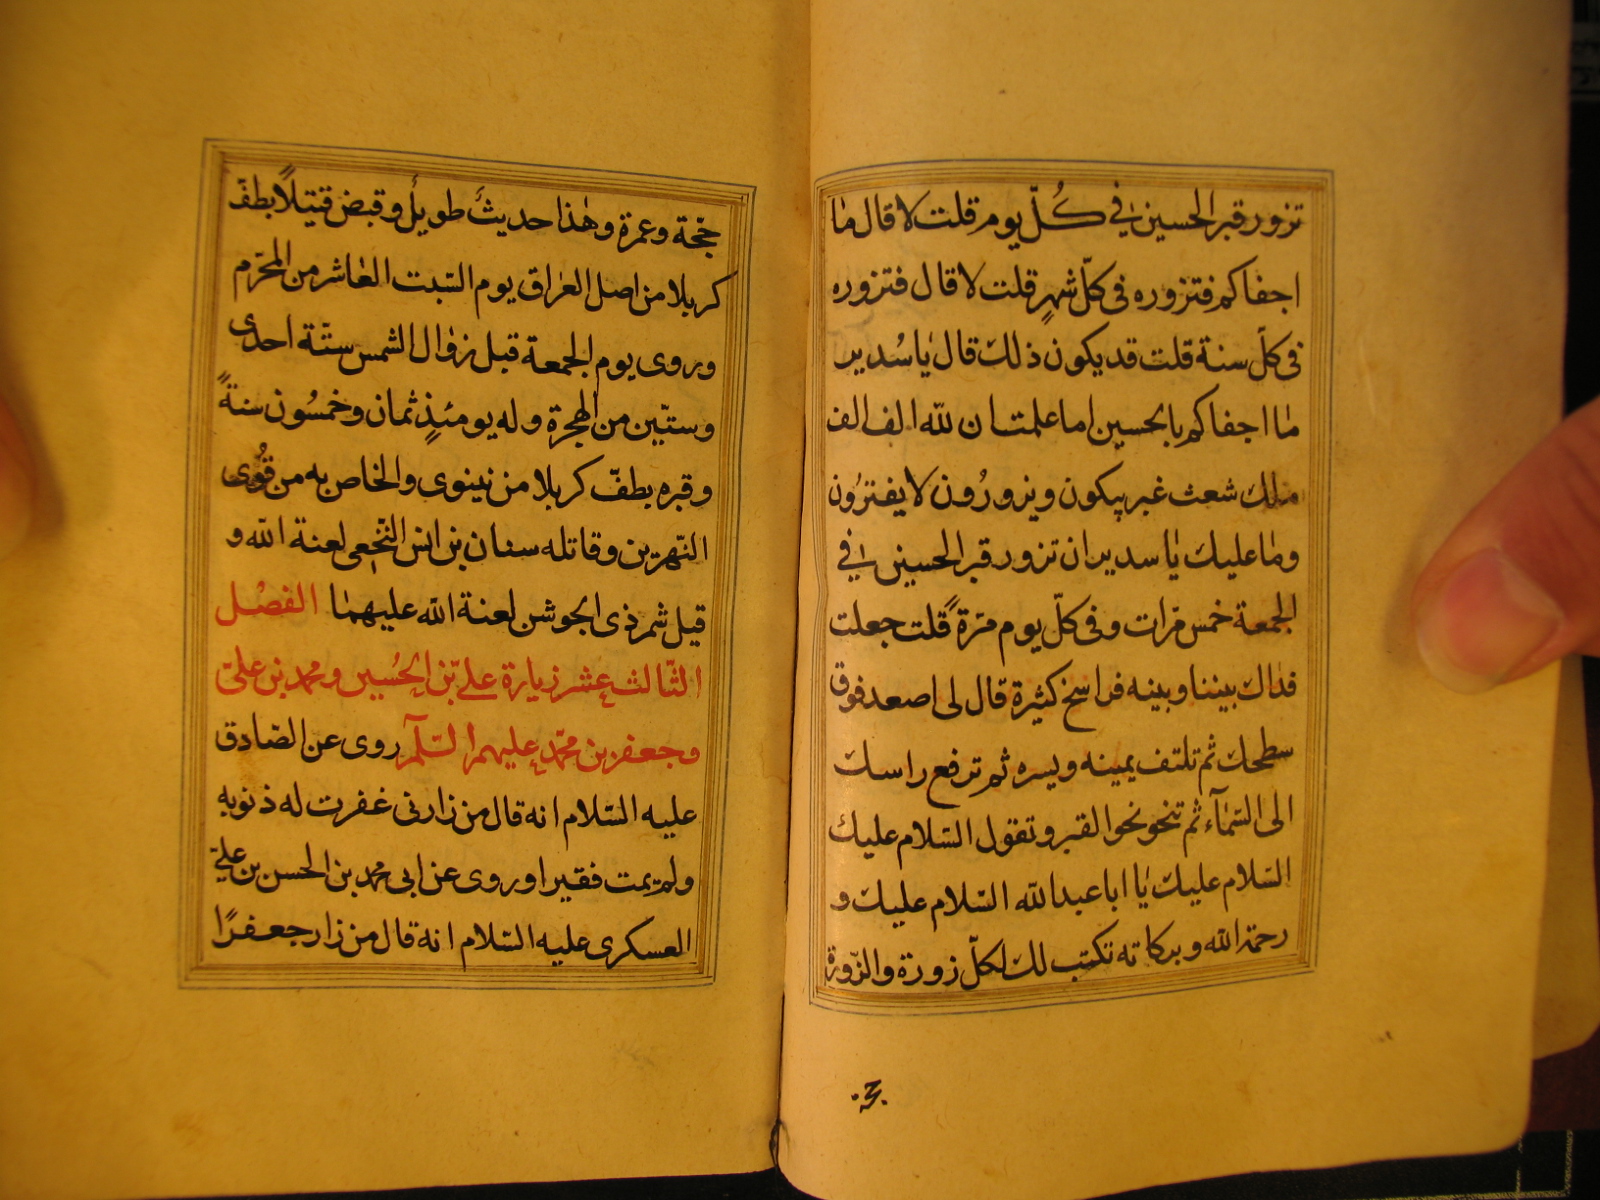 تزور قبر الحسين في كُلّ يوم قلت لا قال مٰا
اجفاكم فتزوره فى كلّ شهرٍ قلت لا قال فتزوره
فى كلّ سنة قلت قد يكون ذلك قال يٰا سُدير
مٰا اجفاكم بالحسين اما علمت ان لله الف الف
ملك شعث غبر يبكون ويزورُون لا يفترُون
ومٰا عليك يٰا سدير ان تزور قبر الحسين في
الجمعة خمس مرّات وفى كلّ يوم مرّةً قلت جعلت
فداك بيننا وبينه فراسخ كثيرة قال لى اصعد فوق
سطحك ثم تلتف يمينه ويسره ثم ترفع راسك
الى السّمٰآء ثم تنحو نحوا القبر وتقول السّلام عليك
السّلام عليك يٰا ابا عبدالله السّلام عليك و
رحمة الله وبركاته تكتب لك لكلّ زورة والزّورة
حجّة وعمرة وهٰذا حديثٌ طويلٌ وقبض قتيلاً بطفّ
كربلا من اصل العراق يوم السّبت العٰاشر من المحرّم
وروى يوم الجمعة قبل زوٰال الشمس سنة احدى
وستّين من الهجرة وله يومئذٍ ثمان وخمسُون سنةً
وقبره بطفّ كربلا من نينوى والخاص به من قُرى
النّهرين وقاتله سنان بن انس النّخعى لعنة الله و
قيل شمر ذى الجوشن لعنة الله عليهمٰا الفصْل
الثّالث عشر زيارة علي بن الحُسين ومحمد بن علىّ
وجعفر بن محمّد عليهم السّلٰم روى عن الصّادق
عليه السّلام انه قال من زارنى غفرت له ذنوبه
ولم يمت فقيرا وروى عن ابى محمد بن الحسن بن علىّ
العسكرى عليه السّلام انه قال من زار جعفرًا